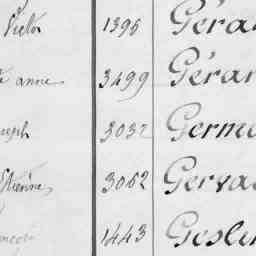 Victor 1395 Géra
anne 3499 Gérar
seph 3037 Germe
Etienne 3062 Gerva
ançois 1443 Geslin